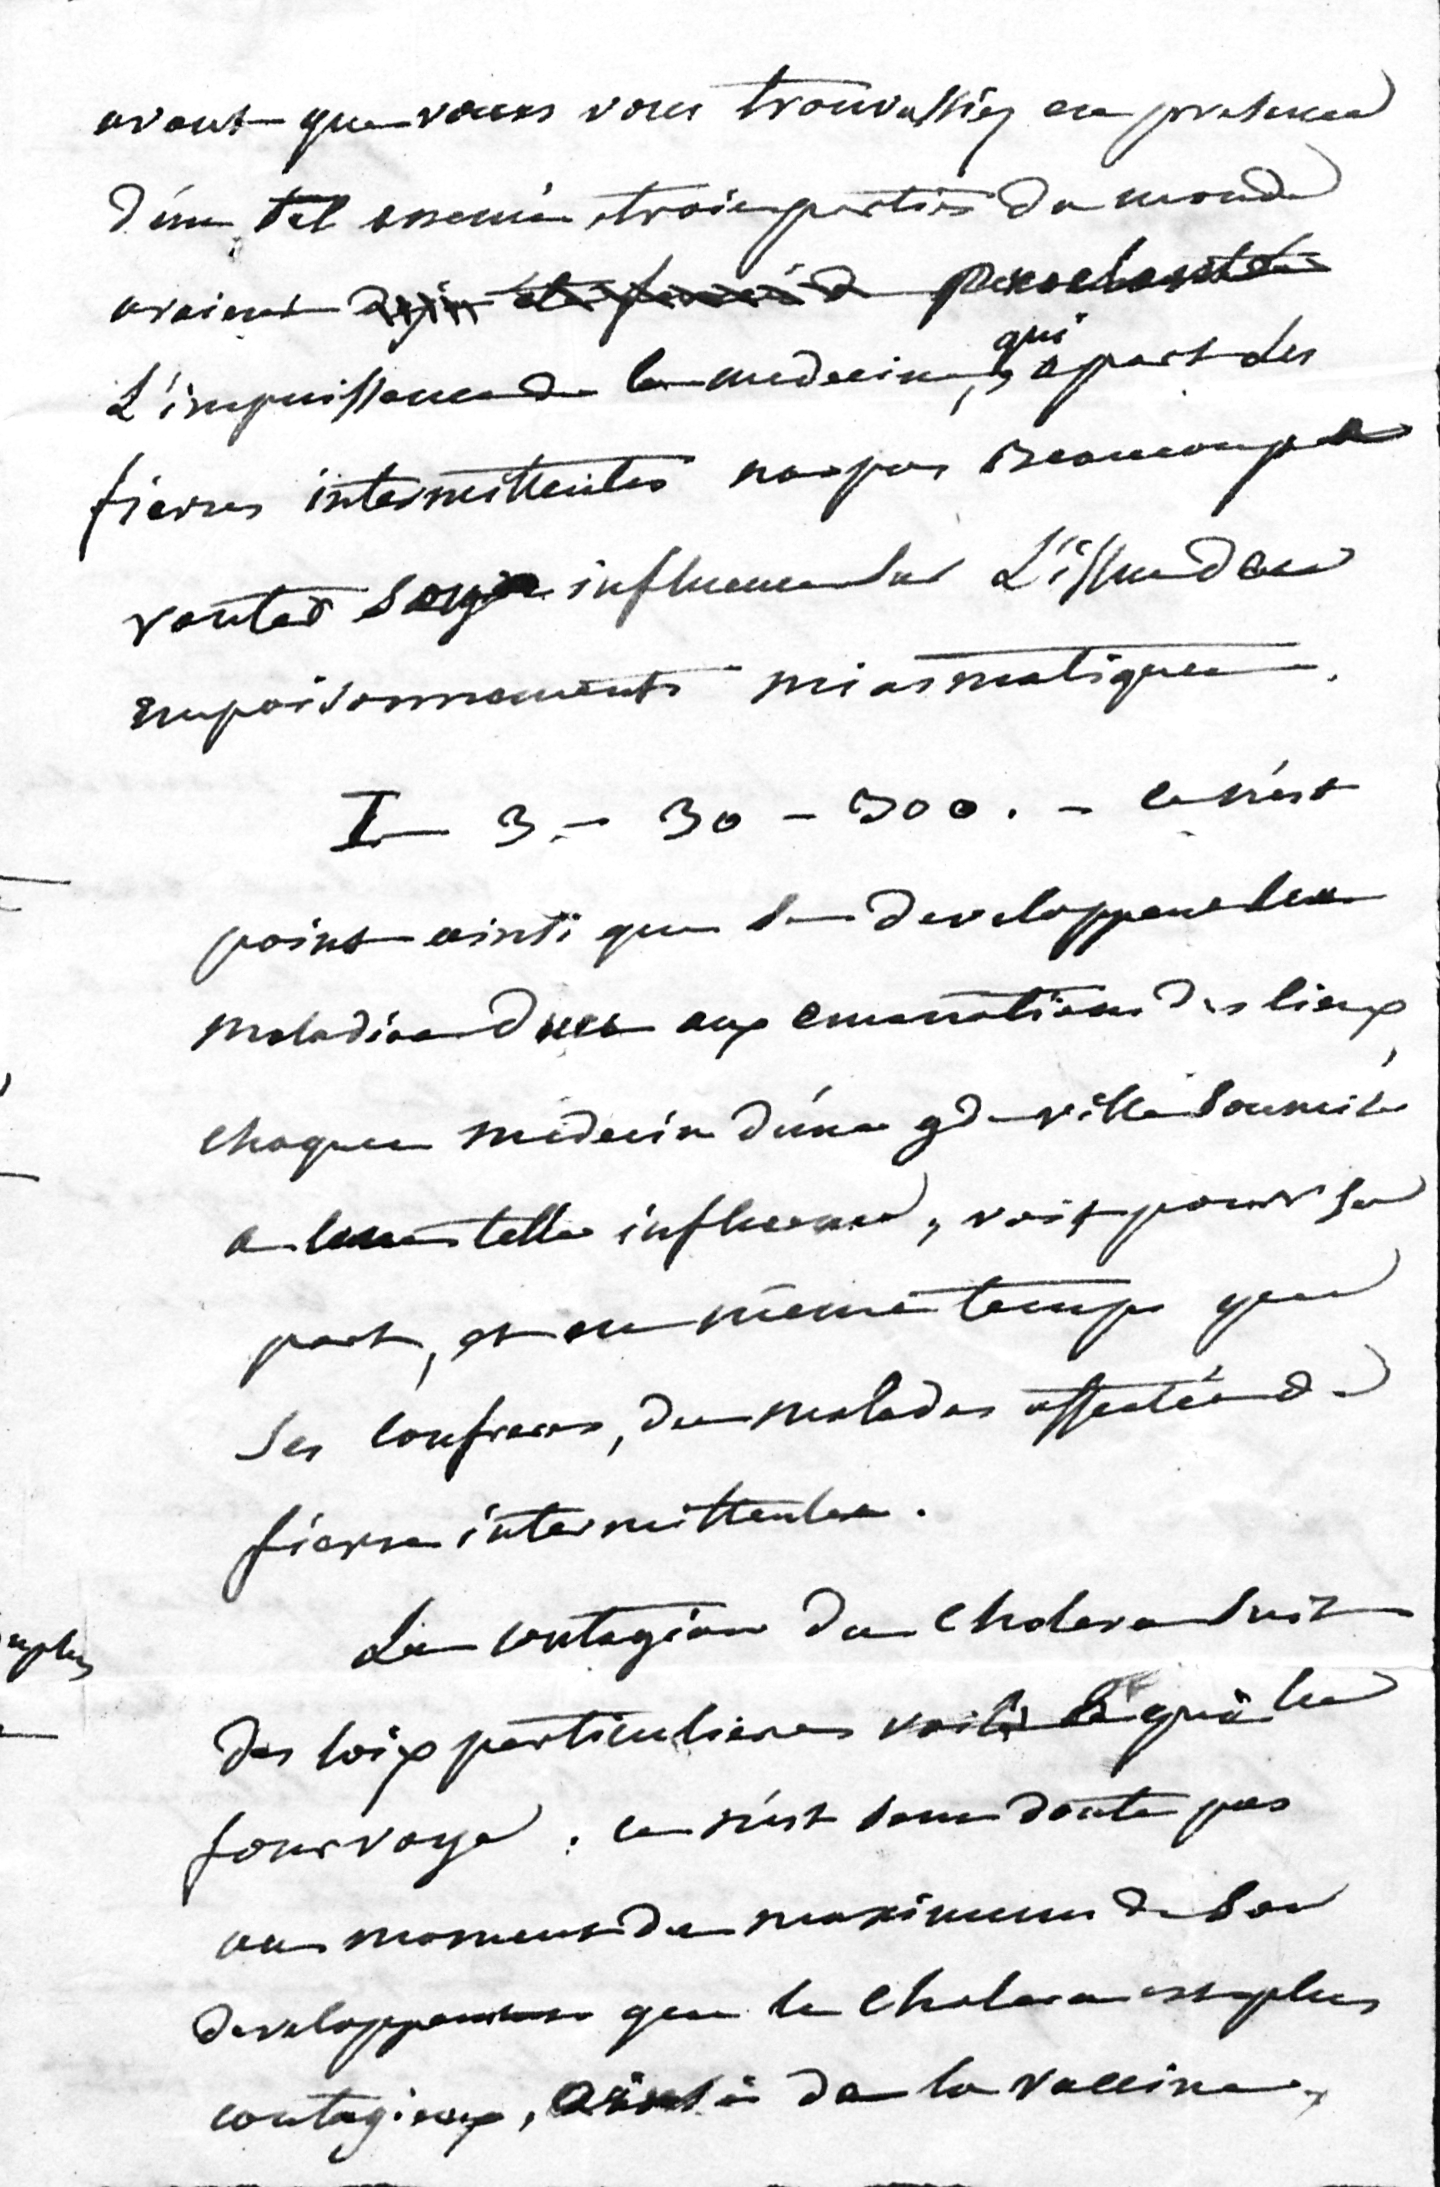 avant que vous vous trouvassiez en presence
d'un tel ennemi, trois parties du monde
avaient proclamé
L'impuissance de la medecine, qui apart des
fievres intermittentes n'a pas beaucoup a
vanter son influence sur L'issue des
empoisonnements miasmatiques.
I — 3 — 30 — 300. — ce n'est
point ainsi que se developpent les
maladies dues aux emanations des lieux,
chaque medecin d'une gde ville soumise
a une telle influence, voit pour sa
part, et en même temps que
ses confreres, des malades affectés de
fievres intermittentes.
La contagion du cholera suit
des loix particulieres voilà ce qui les
fourvoye. ce n'est sans doute pas
au moment du maximum de son
developpement que le cholera est plus
contagieux, ainsi de la vaccine,